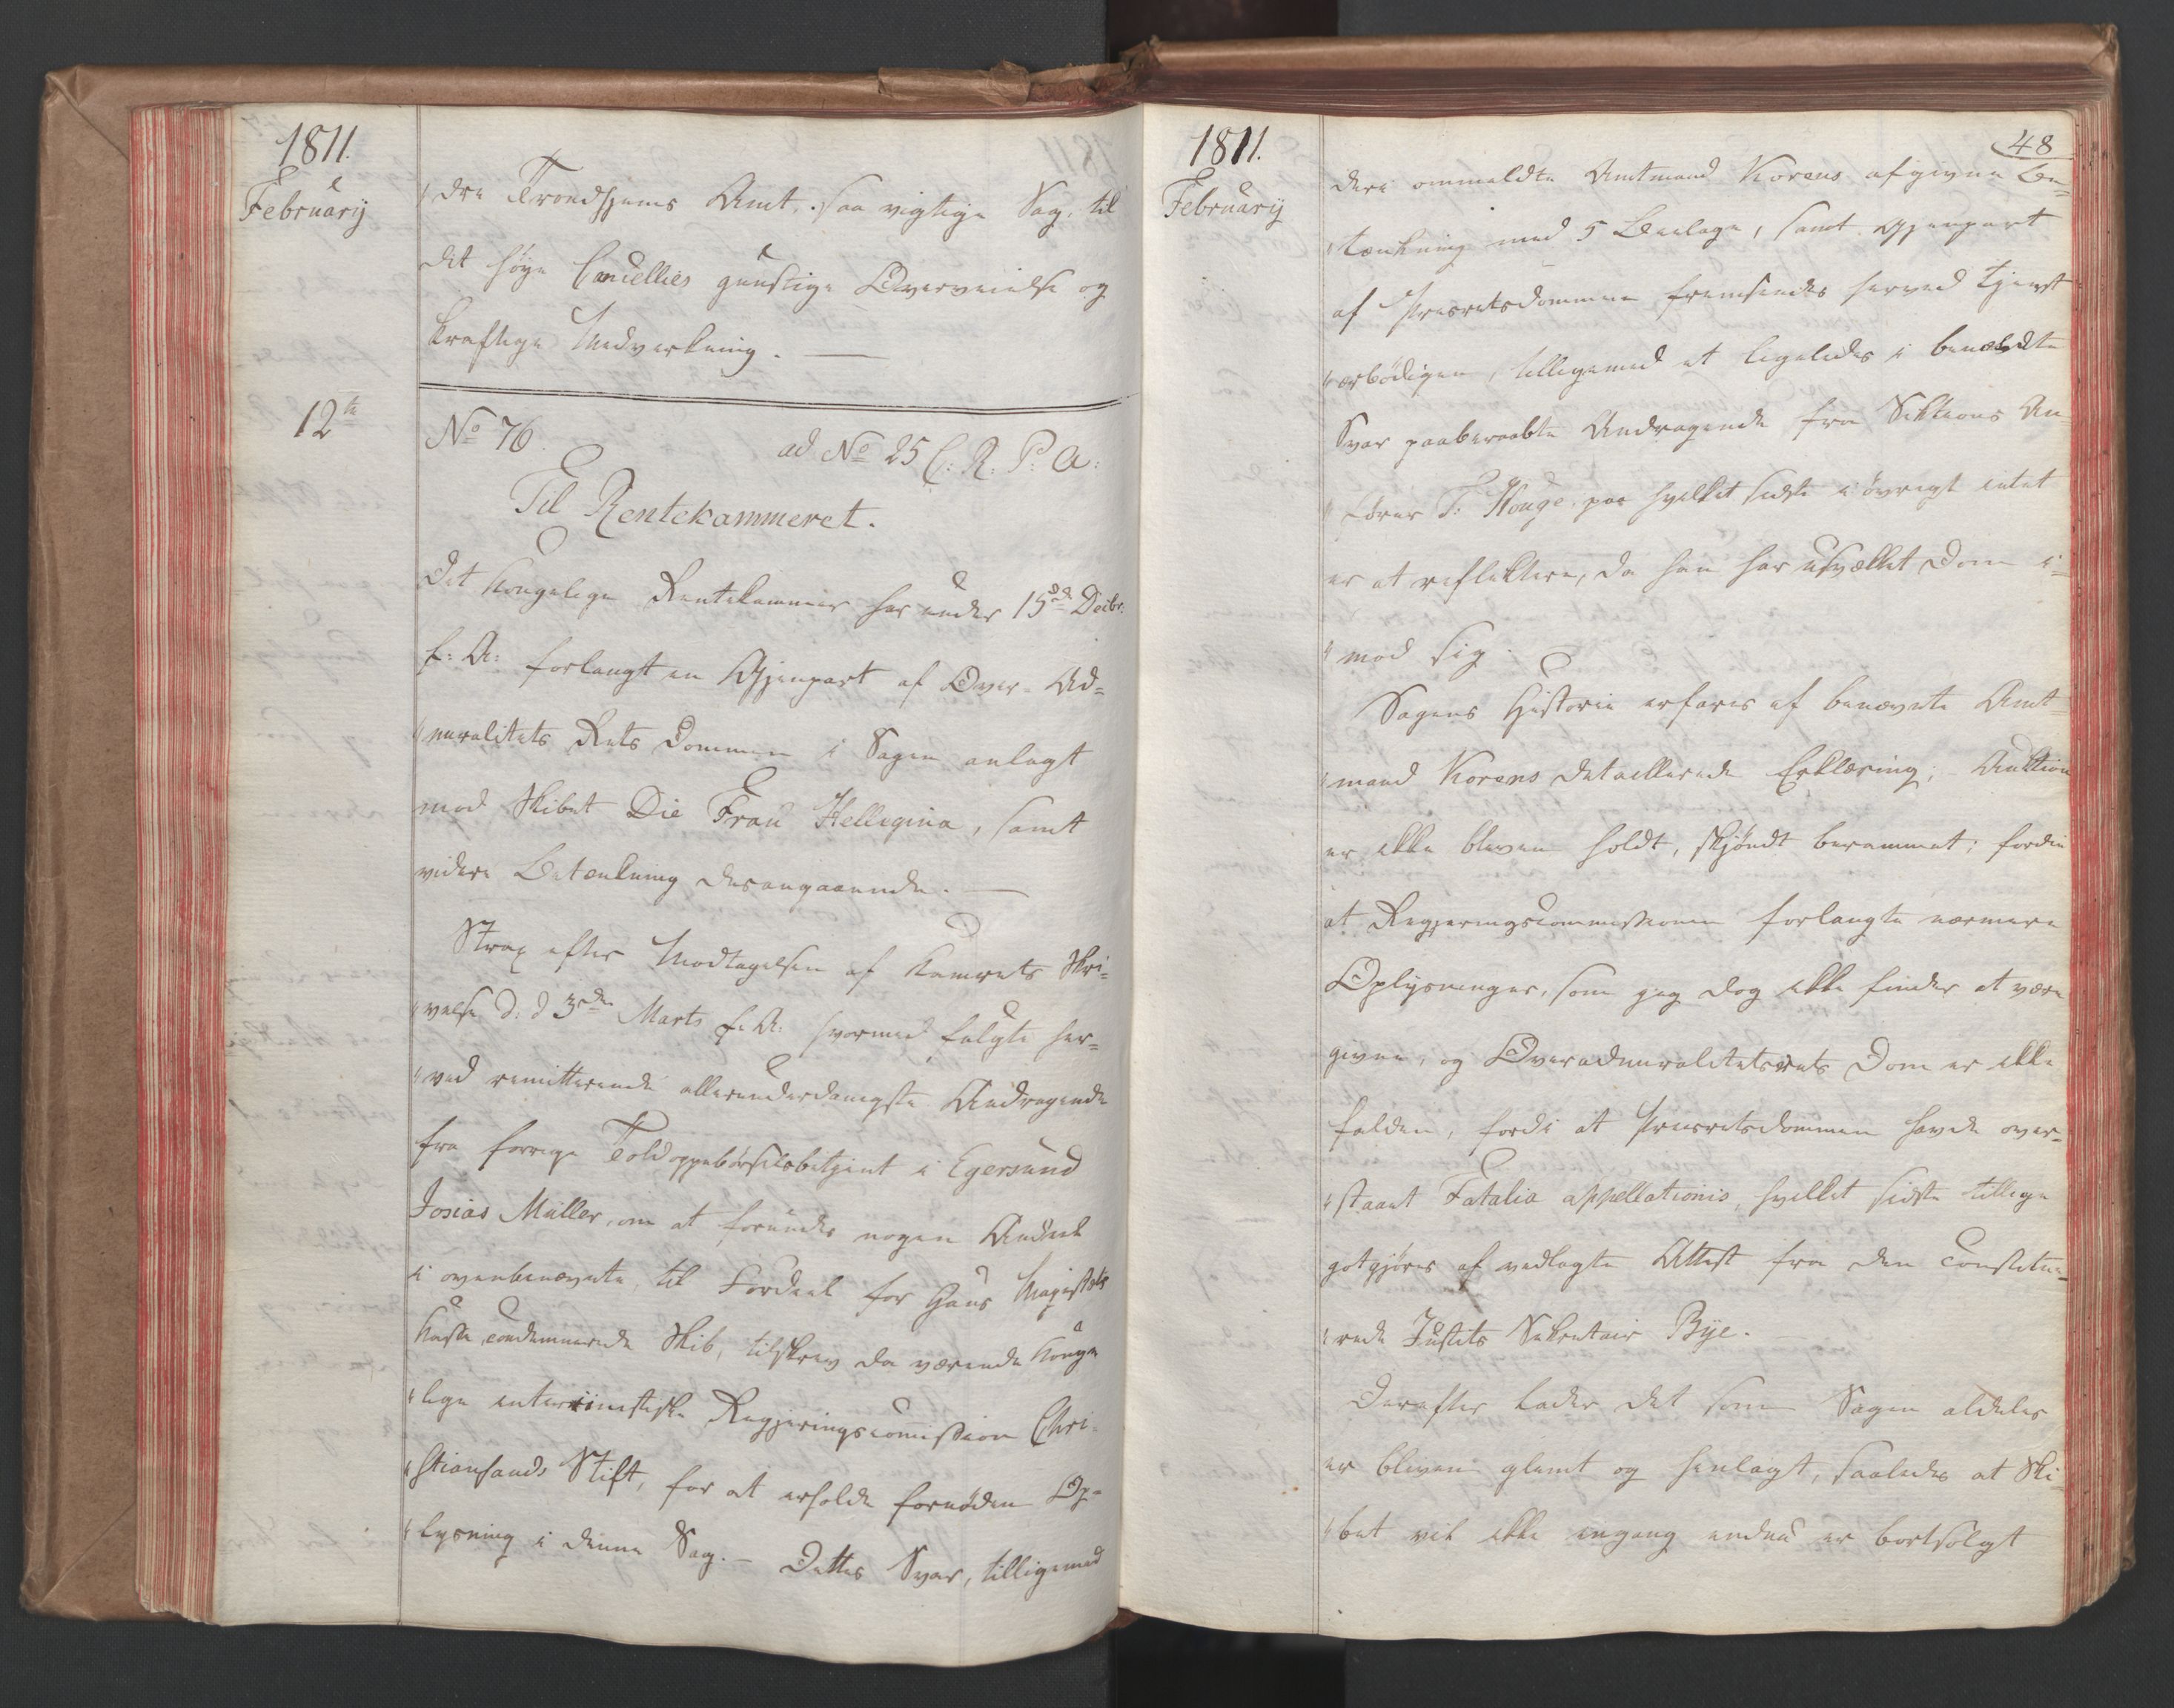 1811.
February
"dre Trondhjems Amt, saa vigtige Sag, til
det høye Cancellies gunstige Overveielse og
kraftige Medvirkning. —
12te
No 76.
ad No 25 C: R: P: A:
Til Rentekammeret.
Det kongelige Rentekammer har under 15de Decbr:
f: A: forlangt en Gjenpart af Over-Ad=
"miralitets Rets Dommen i Sagen anlagt
mod Skibet Die Frau Hellegina, samt
videre Betænkning desangaaende. —
Strax efter Modtagelsen af Kamrets Skri=
"velse d: d 3die Marts f. A: hvormed fulgte her=
"ved remitterende allerunderdanigste Andragende
fra forrige Toldoppebørselsbetjent i Egersund
Josias Müller, om at forundes nogen Andeel
i ovenbenævnte til Fordeel for Hans Majestæts
Kasse condemnerede Skib, tilskrev da værende Konge
"lige interimistiske Regjeringscommission Chri-
"stiansands Stift, for at erholde fornøden Op=
"lysning i denne Sag. — Dettes Svar, tilligemed
1811.
February
48
deri ommeldte Amtmand Korens afgivne Be=
"tænkning med 5 Beilage, samt Gjenpart
af Priseretsdommen fremsendes herved tjenst
"ærbødigen, tilligemed et ligeledes i benævnte
Svar paaberaabte Andragende fra Auctions An
"fører T: Houge, paa hvilket sidste i øvrigt intet
er at reflektere, da han har udvællet Dom i=
"mod sig.
Sagens Historie erfares af benævnte Amt=
"mand Korens detaillerede Erklæring; Auktion
er ikke bleven holdt, skjøndt berammet; fordi
at Regjeringscommissionen forlangte nærmere
Oplysninger, som jeg dog ikke finder at være
givne, og Overadmiralitetsrets Dom er ikke
falden, fordi at Priseretsdommen havde over=
"staaet Fatalia appellationis, hvilket sidste tillige
gotgjøres af vedlagte Attest fra den Constitue=
"rede Justits Sekretair Bye.
Derefter lader det som Sagen aldeles
er bleven glemt og henlagt, saaledes at Ski=
"bet vel ikke engang endnu er bortsolgt